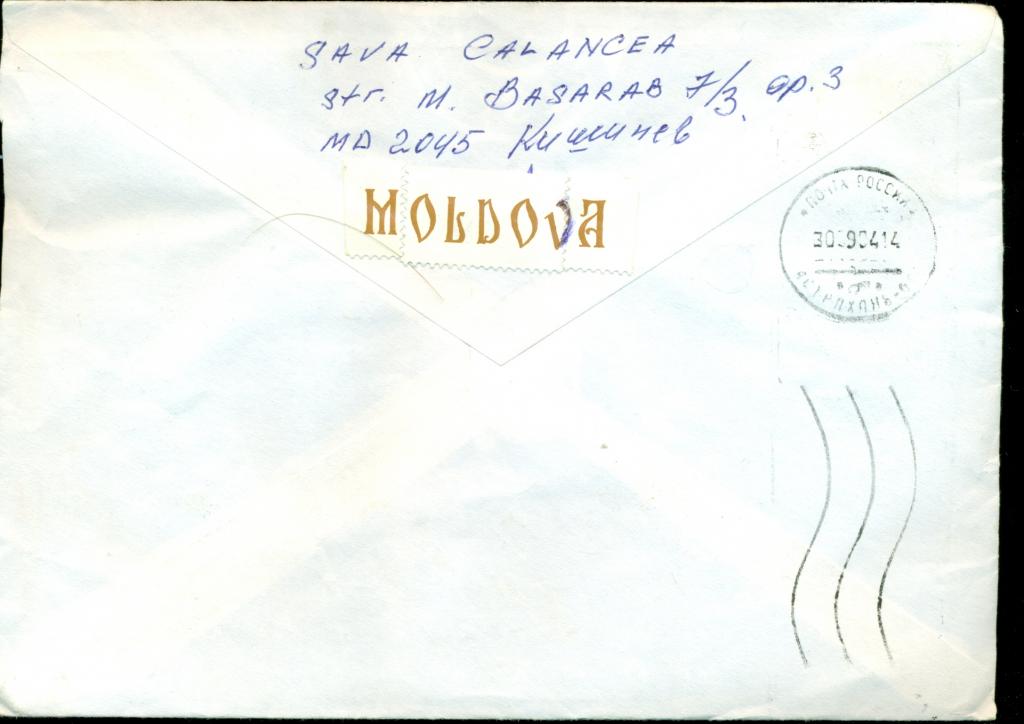 SAVA CALANCEA
str. M. BASARAB 7/3 ap. 3
MD 2045 Кишинев
MOLDOVA
ПОЧТА РОССИИ
АСТРАХАНЬ